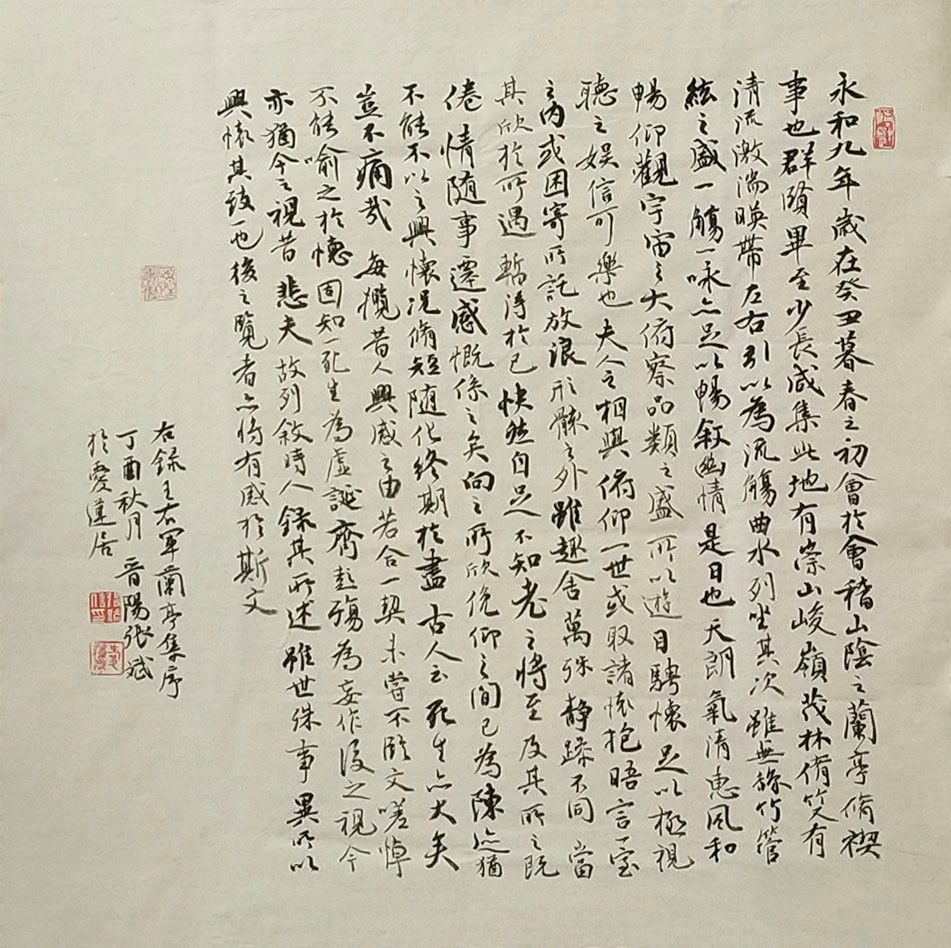 永和九年歲在癸丑暮春之初會於會稽山陰之蘭亭脩禊
事也群賢畢至少長咸集此地有崇山峻嶺茂林脩竹又有
清流激湍暎帶左右引以為流觴曲水列坐其次雖無絲竹管
絃之盛一觴一詠亦足以暢敘幽情是日也天朗氣清惠風和
暢仰觀宇宙之大俯察品類之盛所以遊目騁懷足以極視
聽之娛信可樂也夫人之相與俯仰一世或取諸懷抱晤言一室
之內或因寄所託放浪形骸之外雖趣舍萬殊静躁不同當
其欣於所遇暫得於己快然自足不知老之將至及其所之既
倦情随事遷感慨係之矣向之所欣俛仰之間已為陳迹猶
不能不以之興懷況脩短随化終期於盡古人云死生亦大矣
豈不痛哉每攬昔人興感之由若合一契未嘗不臨文嗟悼
不能喻之於懷固知一死生為虛誕齊彭殤為妄作後之視今
亦猶今之視昔悲夫故列敘時人錄其所述雖世殊事異所以
興懷其致一也後之覽者亦將有感於斯文
右錄王右軍蘭亭集序
丁酉秋月晉陽張斌
於愛蓮居